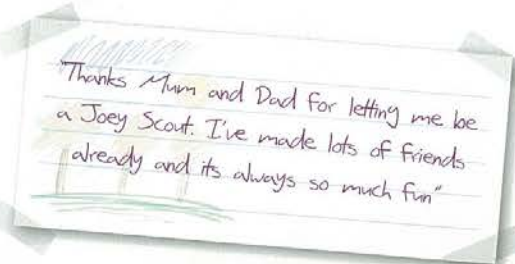 "Thanks Mum and Dad for letting me be
a Joey Scout. I've made lots of friends
already and its always so much fun"